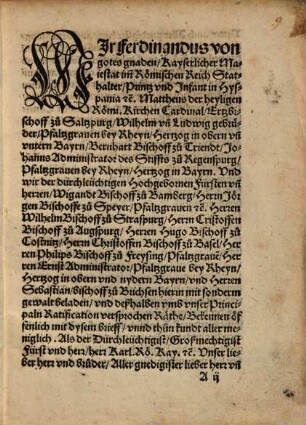 WIr Ferdinandus von
gotes gnaden / Kayserlicher Ma⸗
iestat im̃ Römischen Reich Stat⸗
halter / Printz vnd Infant in Hys⸗
pania ⁊c. Mattheus der heyligen
Rö̈mi. Kirchen Cardinal / Ertzbi⸗
schoff zů Saltzpurg / Wilhelm vñ Ludwig gebrü⸗
der / Pfaltzgrauen bey Rheyn / Hertzog in obern vñ
vntern Bayrn / Bernhart Bischoff zů Triendt / Jo⸗
hanns Administrator des Stiffts zů Regenspurg /
Pfaltzgrauen bey Rheyn / Hertzog in Bayrn. Und
wir der durchleichtigen Hochgebornen Fürsten vñ
herren / Wigandt Bischoff zů Bamberg / Hern Jör⸗
gen Bischoffe zů Speyer / Pfaltzgrauen ⁊c. Herren
Wilhelm Bischoff zů Straspurg / Herrn Cristoffen
Bischoff zů Augspurg / Herren Hugo Bischoff zů
Costnitz / Herrn Christoffen Bischoff zů Basel / Her⸗
ren Philips Bischoff zů Freysing / Pfaltzgraue / Her⸗
ren Ernst Administrator / Pfaltzgraue bey Rheyn /
Hertzog in obern vnd nydern Bayrn / vnd Herren
Sebastian bischoff zů Brichsen hierin mit sondern
gewalt beladen / vnd deßhalben vmb vnser Princi⸗
paln Ratification versprochen Räthe / Bekennen öf
senlich mit dysem brieff / vnnd thůn kundt aller me⸗
niglich. Als der Durchleüchtigist / Großmechtigist
Fürst vnd herr / herr Karl. Rö. Kay. ⁊c. Unser lie⸗
ber herr vnd brůder / Aller gnedigister lieber herr vñ
A ij